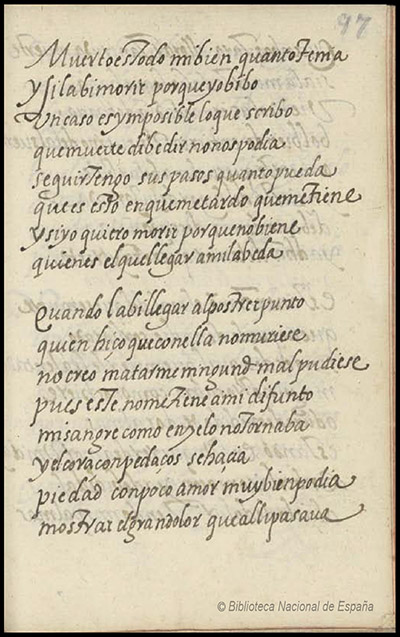 97
Muerto es todo mi bien quanto tema
y si la bi morir porque yo bibo
Un caso es ymposible lo que scribo
que muerte dibedir no nos podia
seguir tengo sus pasos quanto pueda
que es esto en que me tardo que me tiene
y si yo quiero morir porque no biene
quien es el que llegar a mi la beda
Quando la bi llegar al postrer punto
quien hiço que con ella no muriese
no creo matarme ningund mal pudiese
pues este no me tiene a mi difunto
mi sangre como en yelo no tornaba
y el coraçon pedaços se haçia
piedad con poco amor muy bien podia
mostrar el gran dolor que alli pasaua
© Biblioteca Nacional de España